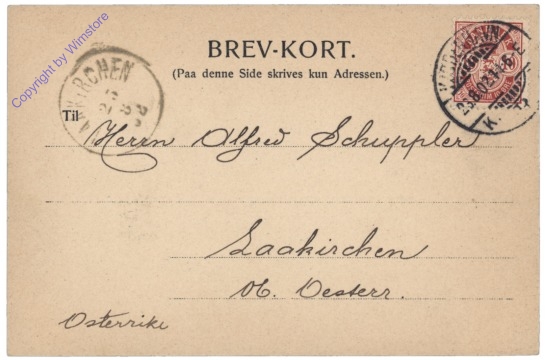 BREV-KORT.
(Paa denne Side skrives kun Adressen.)
Til
Herrn Alfred Schuppler
Laakirchen
Ob. Oesterr.
Osterrike
KJØBENHAVN
23.8.02
K.
AKIRCHEN
Copyright by Wimstore